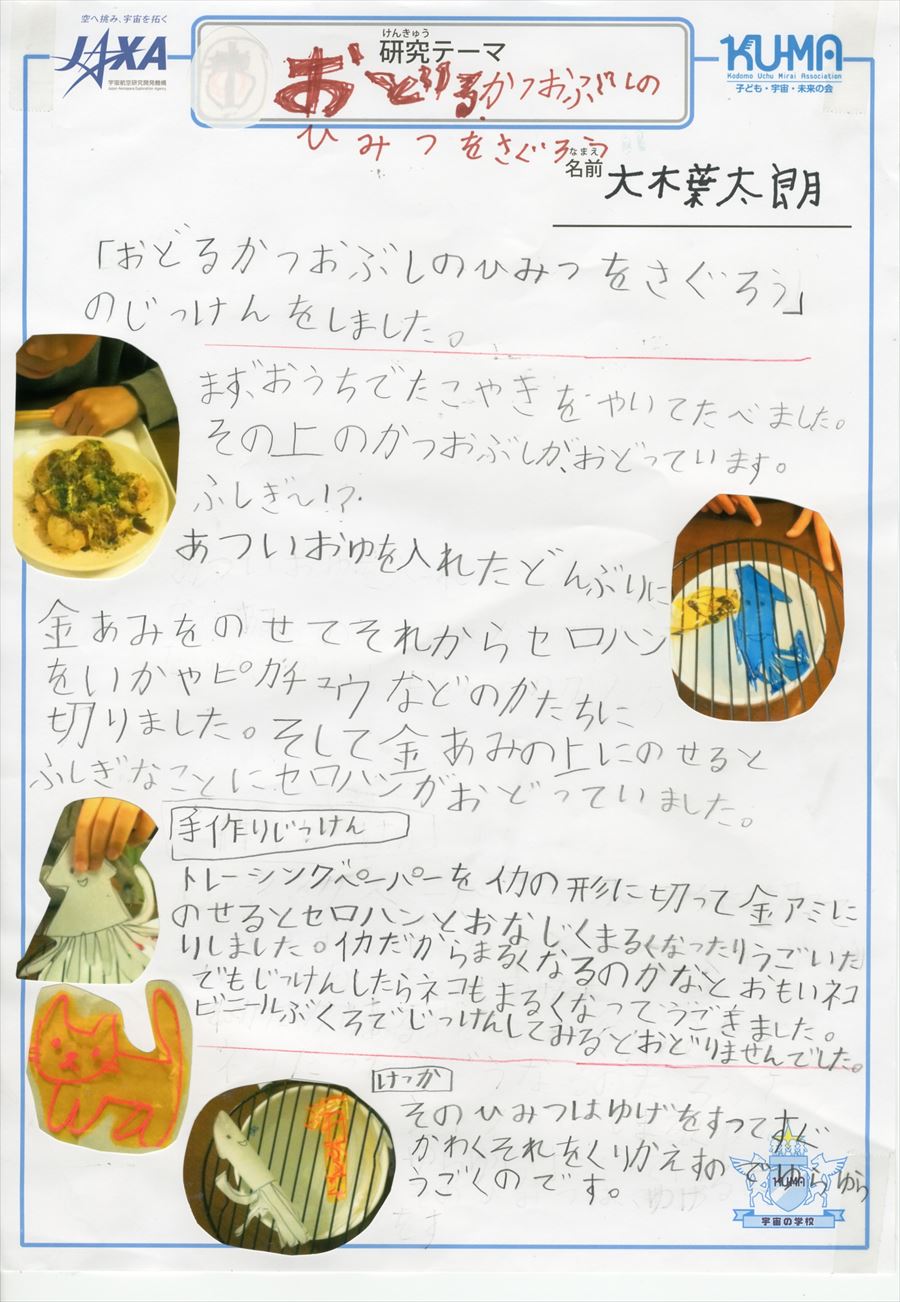 空へ挑み、宇宙を拓く
JAXA
宇宙航空研究開発機構
Japan Aerospace Exploration Agency
けんきゅう
研究テーマ
おどるかつおぶしの
ひみつをさぐろう
KU-MA
Kodomo Uchu Mirai Association
子ども・宇宙・未来の会
なまえ
名前
大木葉太朗
「おどるかつおぶしのひみつをさぐろう」
のじっけんをしました。
まず、おうちでたこやきをやいてたべました。
その上のかつおぶしが、おどっています。
ふしぎ〜!?
あついおゆを入れたどんぶりに
金あみをのせてそれからセロハン
をいかやピカチュウなどのかたちに
切りました。そして金あみの上にのせると
ふしぎなことにセロハンがおどっていました。
手作りじっけん
トレーシングペーパーをイカの形に切って金アミに
のせるとセロハンとおなじくまるくなったりうごいた
りしました。イカだからまるくなるのかなとおもいネコ
でもじっけんしたらネコもまるくなってうごきました。
ビニールぶくろでじっけんしてみるとおどりませんでした。
けっか
そのひみつはゆげをすってすぐ
かわくそれをくりかえすのでゆらゆら
うごくのです。
KUMA
宇宙の学校